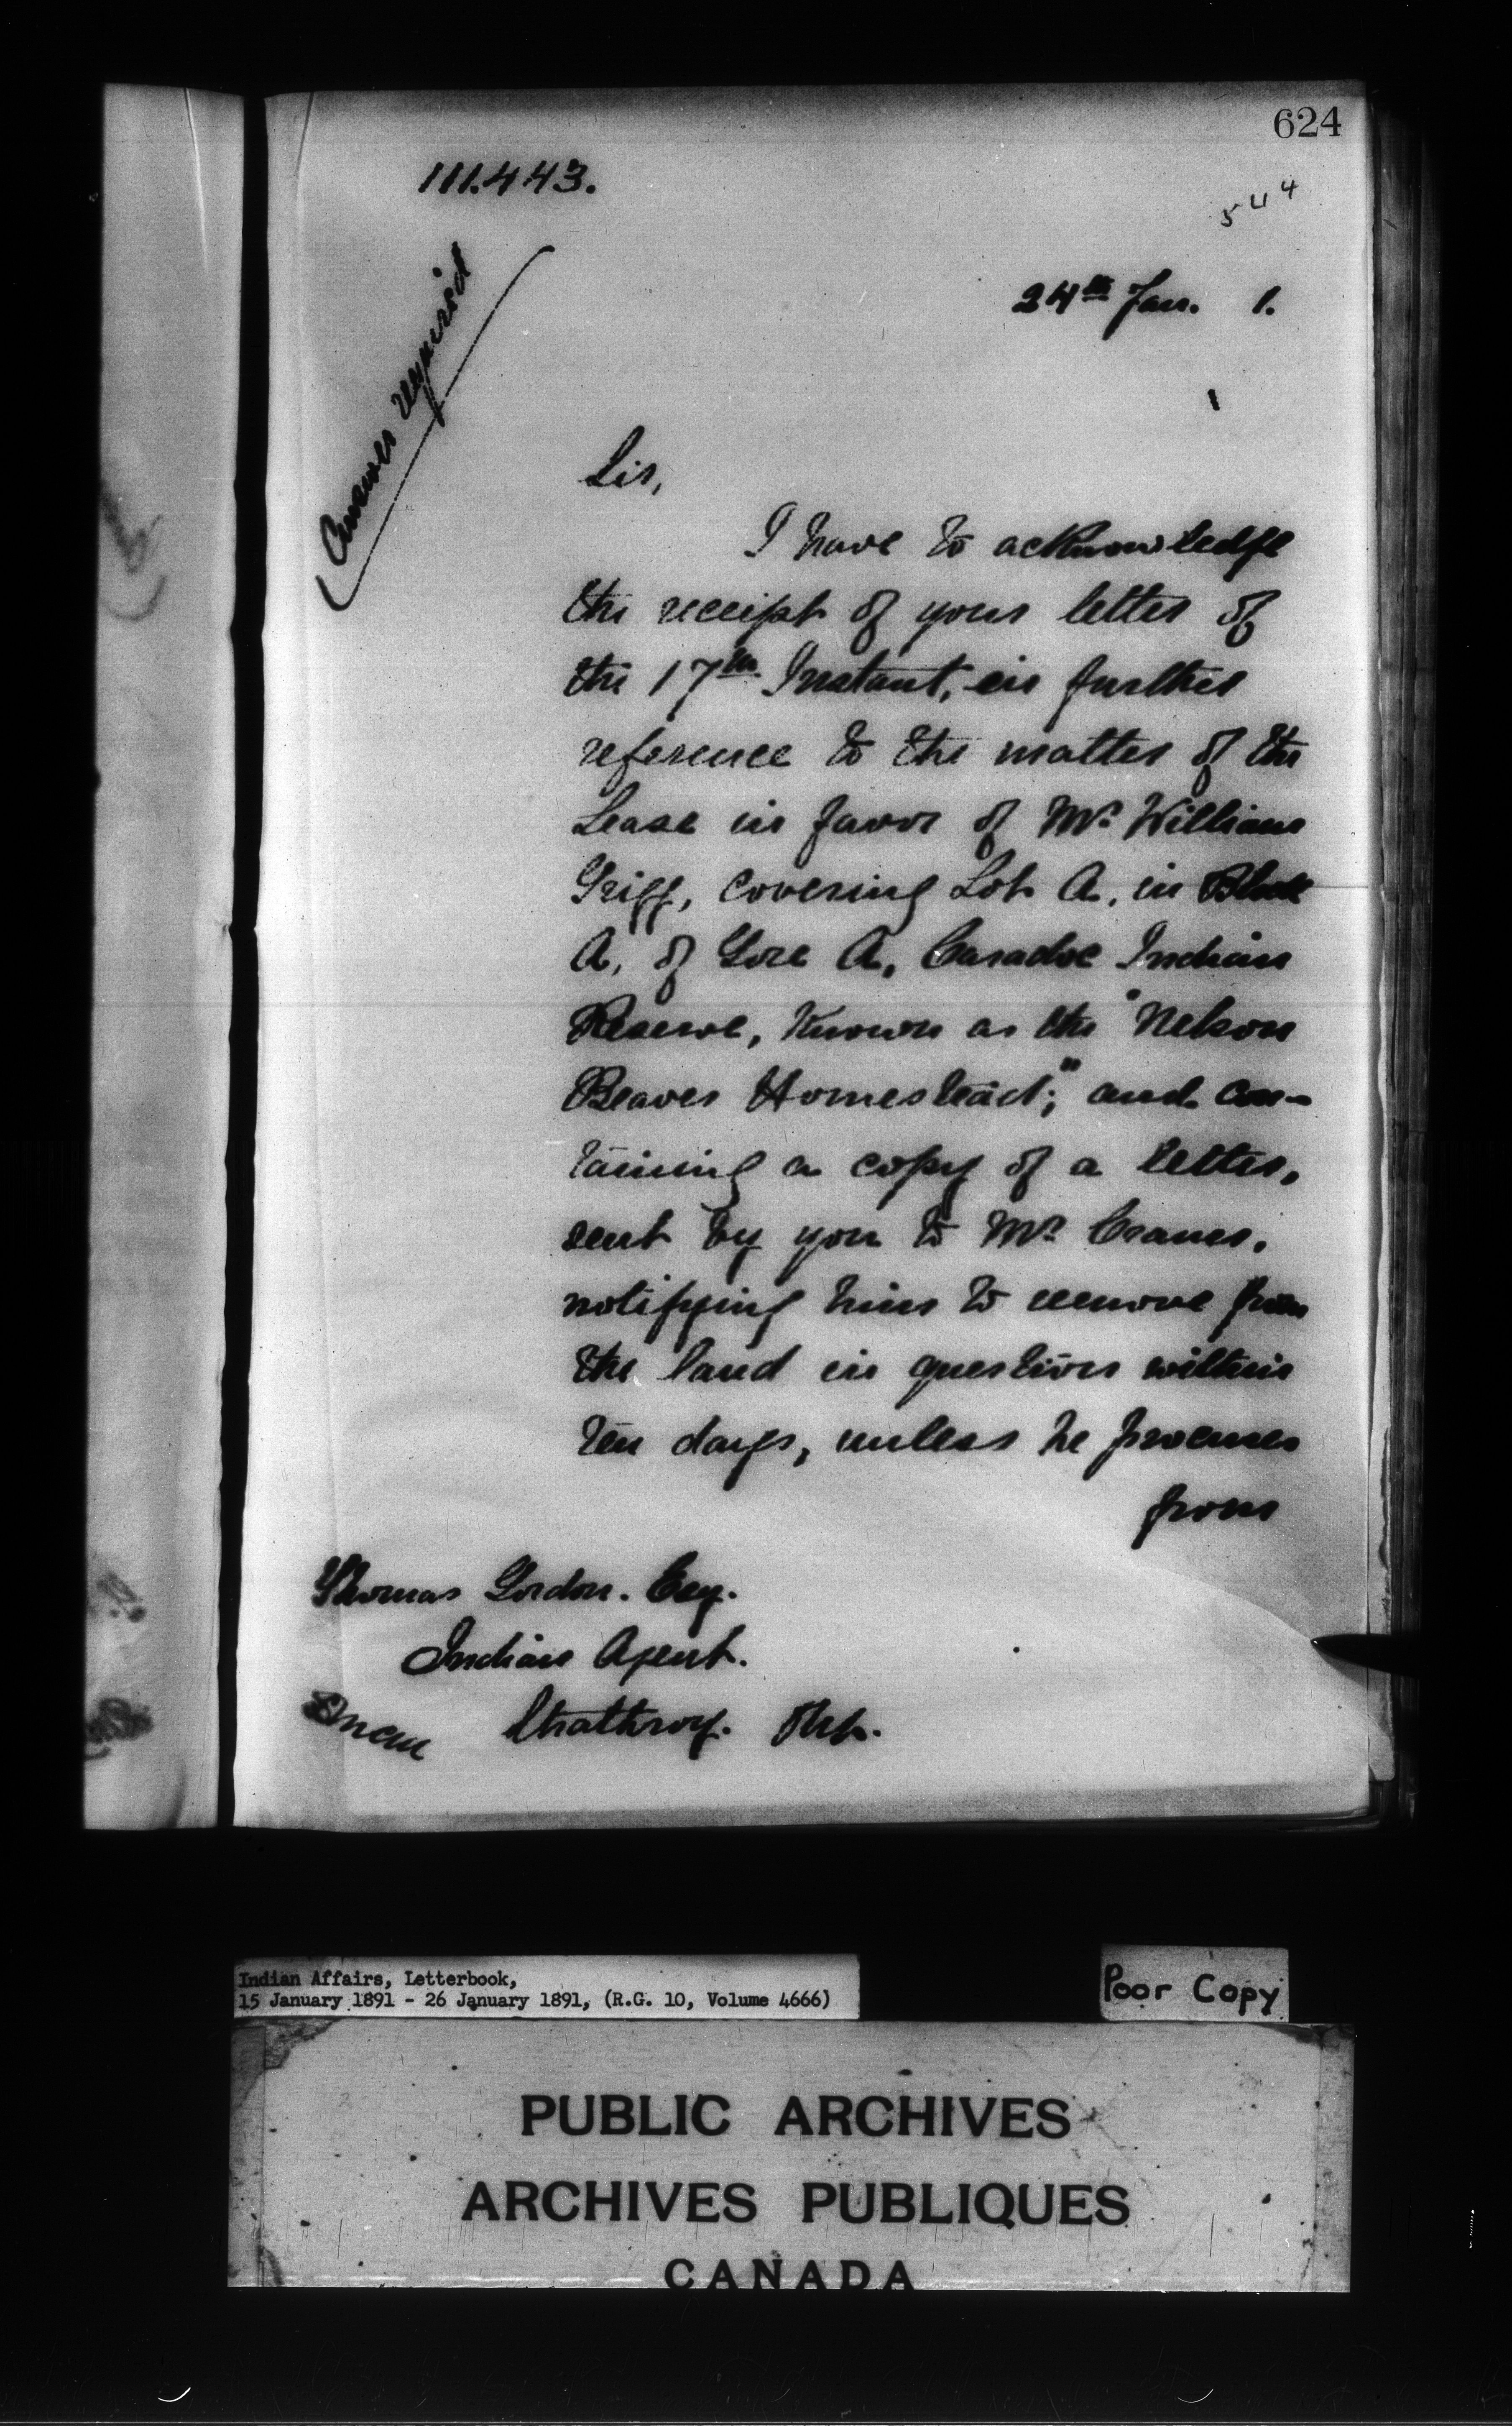 624
111.443.
544
24th Jan. 1.
Answer required
Sir,
I have to acknowledge
the receipt of your letter of
the 17th Instant, in further
reference to the matter of the
Lease in favor of Mr. William
Griff, covering Lot A, in Block
A, of Gore A, Caradoc Indian
Reserve, known as the "Nelson
Beaver Homestead"; and con-
taining a copy of a letter,
sent by you to Mr. Craner,
notifying him to remove from
the land in question within
ten days, unless he procures
from
Thomas Gordon. Esq.
Indian Agent.
Strathroy. Ont.
Indian Affairs, Letterbook,
15 January 1891 - 26 January 1891, (R.G. 10, Volume 4666)
Poor Copy
PUBLIC ARCHIVES
ARCHIVES PUBLIQUES
CANADA